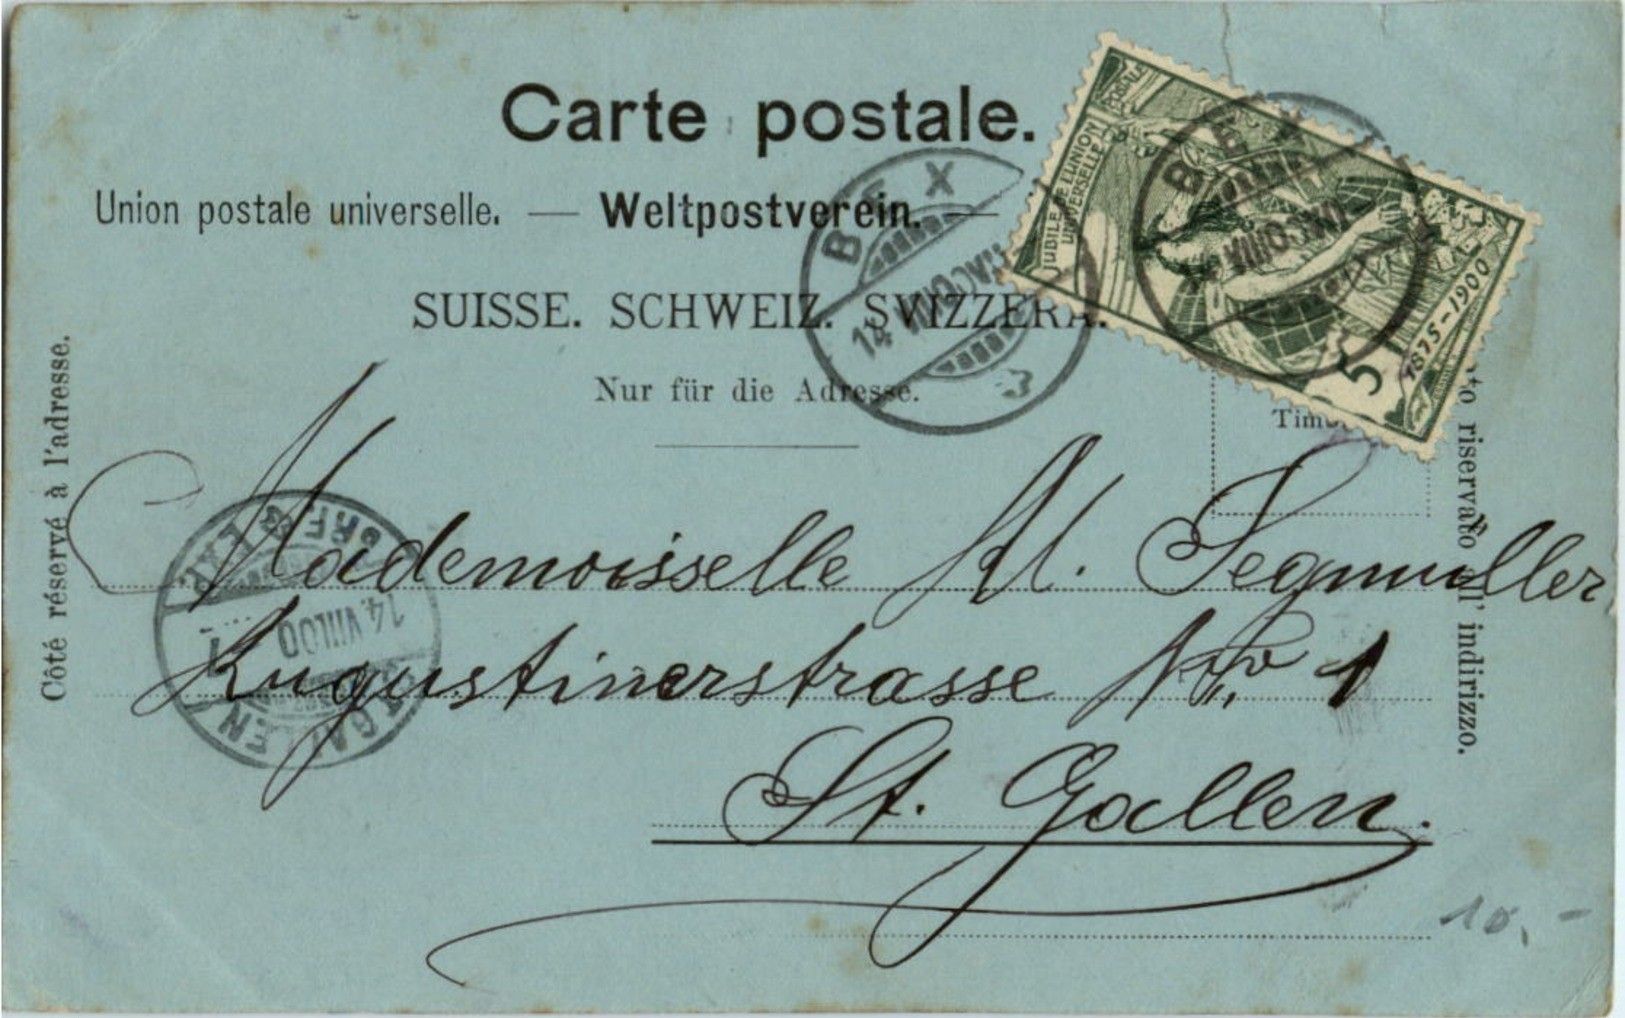 Carte postale.
Union postale universelle. — Weltpostverein. —
SUISSE. SCHWEIZ. SVIZZERA.
Nur für die Adresse.
Côté réservé à l'adresse.
riservato all' indirizzo.
JUBILÉ DE L'UNION
POSTALE
UNIVERSELLE
5
1875-1900
BEX
14 VIII 00
BEX
VIII 00
Mademoisselle M. Segmuller
Augustinerstrasse No 1
St. Gallen.
ST. GALLEN
14. VIII. 00
BRF. EXP.
10.-